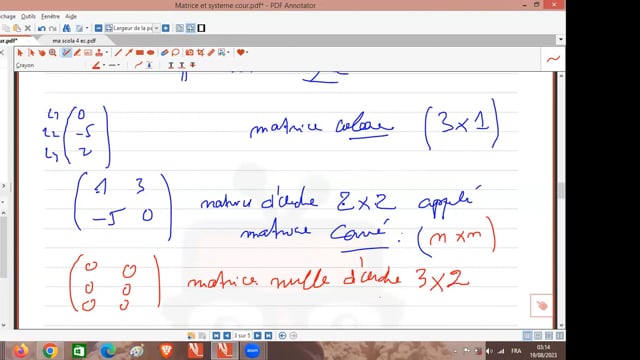 Matrice et systeme cour.pdf* - PDF Annotator
Outils Fenêtre Aide
Largeur de la pa
our.pdf* ma scola 4 ec.pdf*
Crayon
L1 0
L2 -5 matrice colone (3x1)
L3 2
1 3 matrice d'ordre 2x2 appelé
-5 0 matrice Carré : (n x n)
0 0
0 0 matrice nulle d'ordre 3x2
0 0
3 sur 5
FRA
03:14
19/08/2023